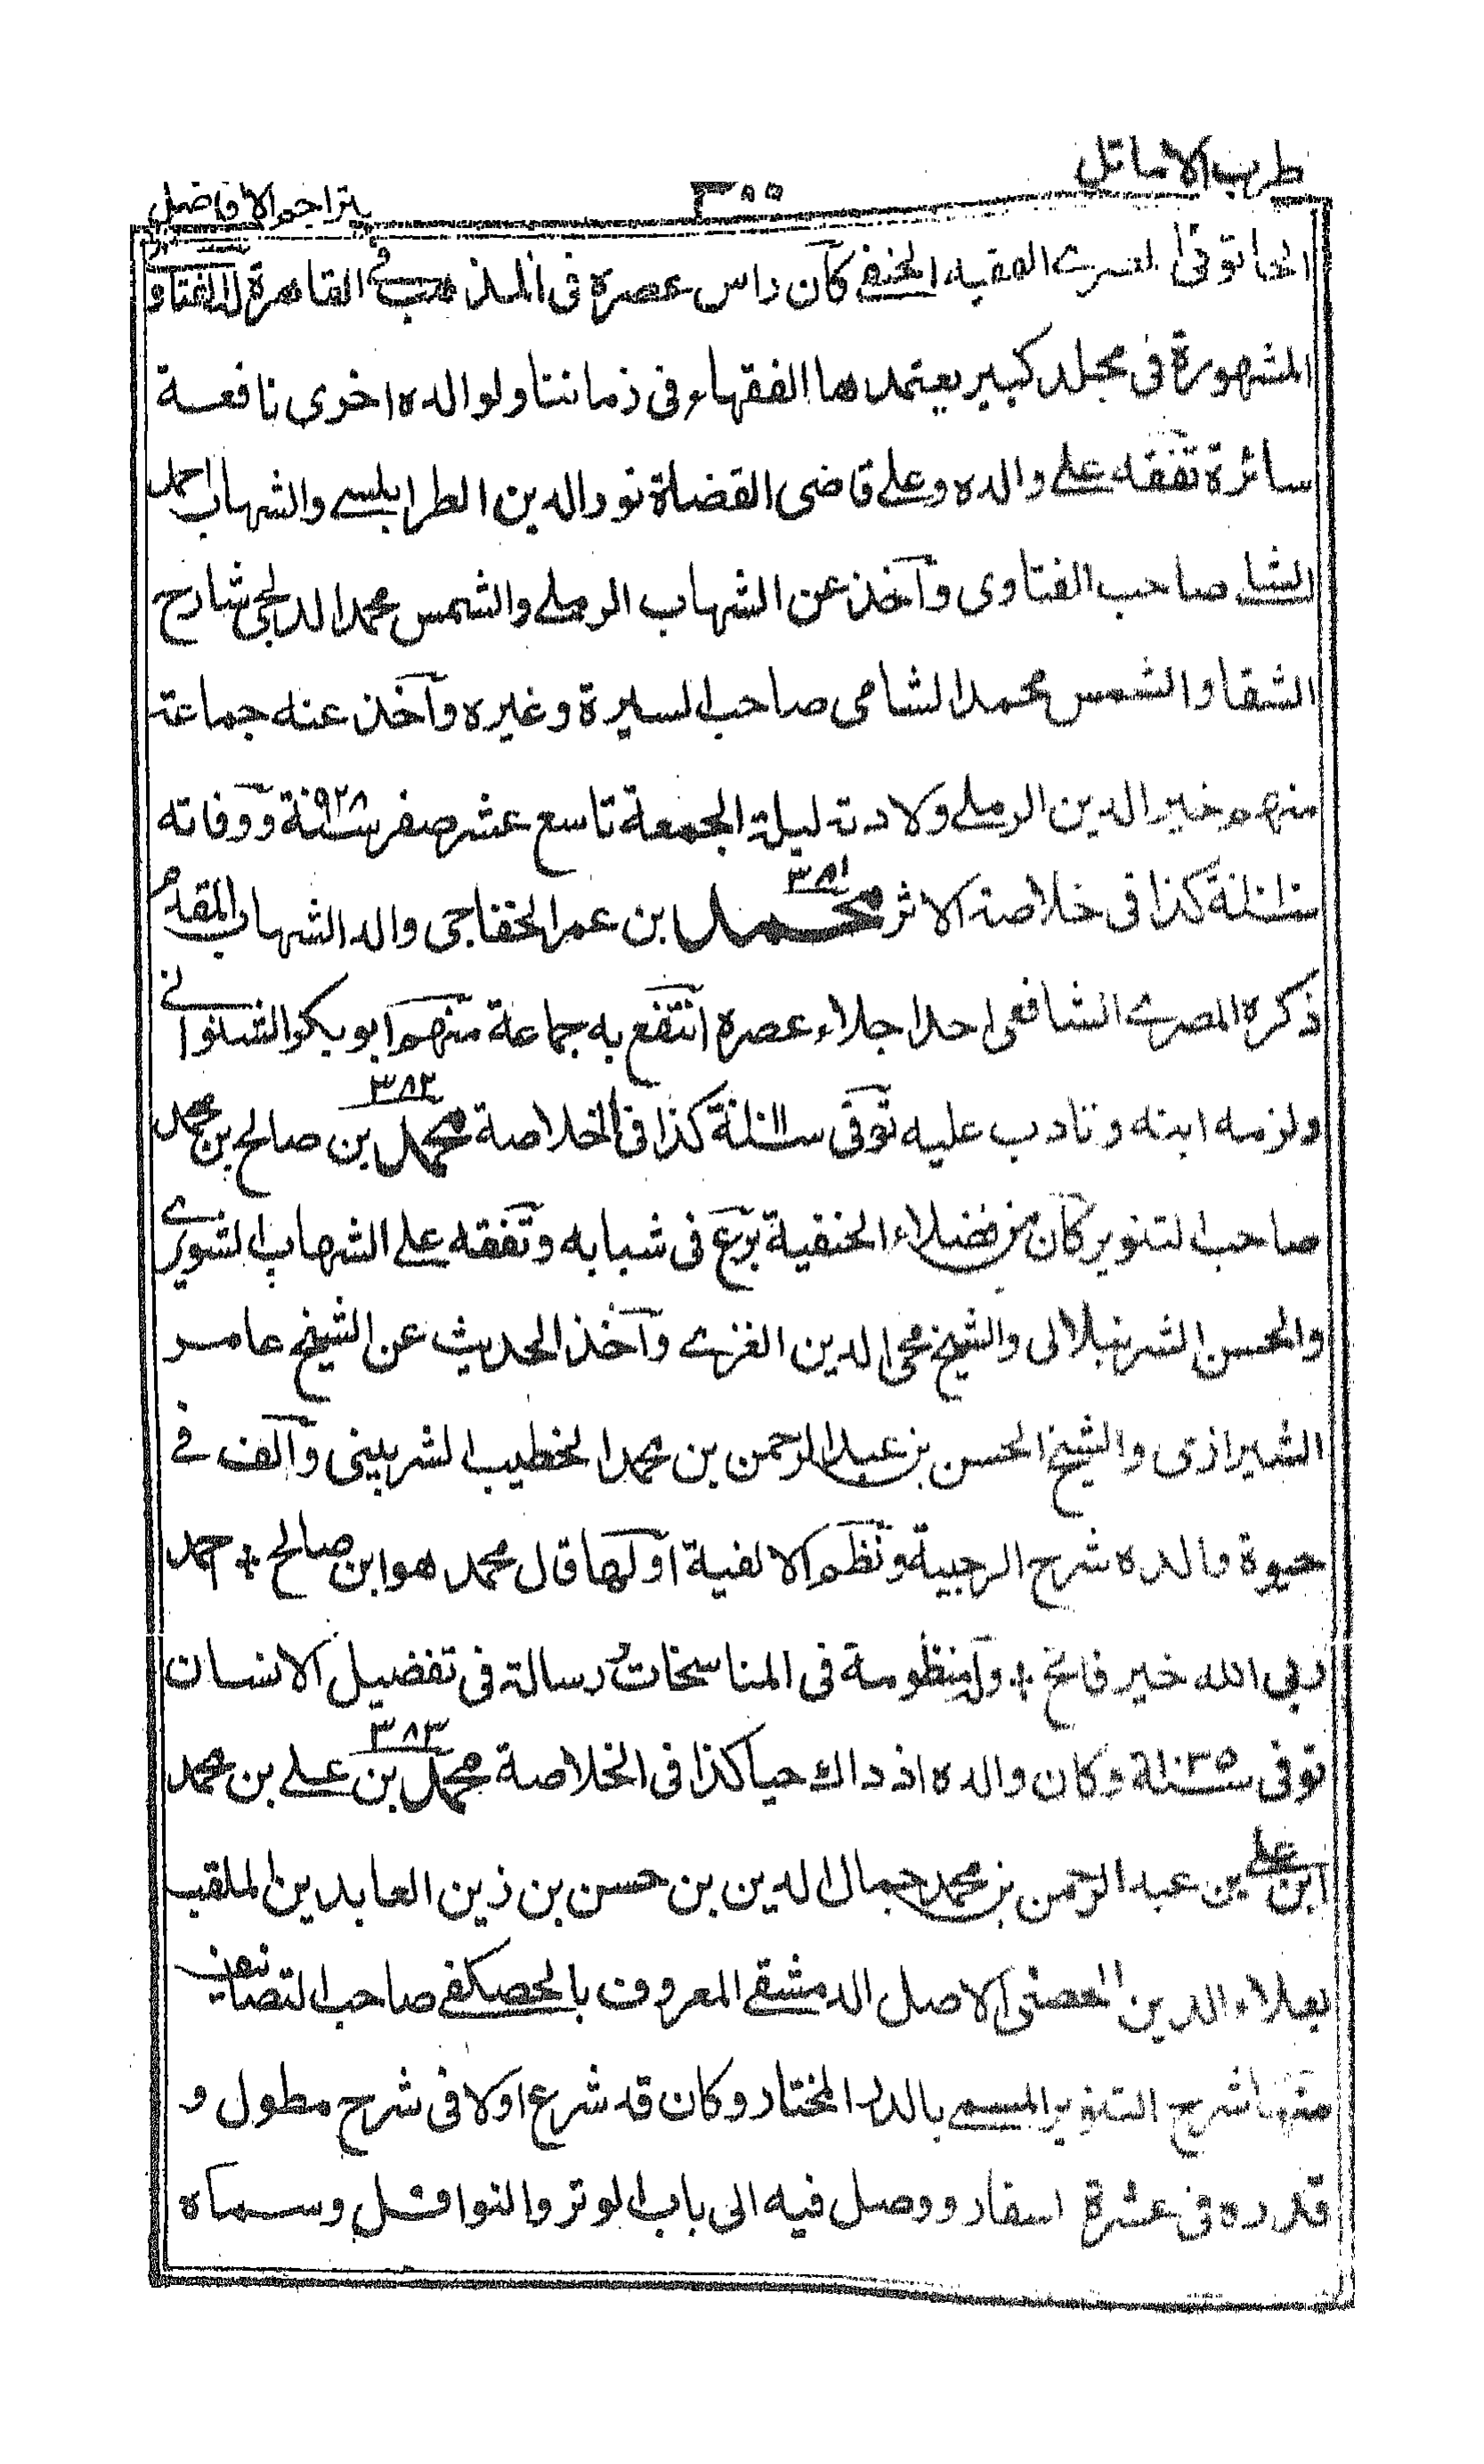 طرب الاماثل
بتراجم الافاضل
الحانوتى المصرى الفقيه الحنفى كان راس عصره فى المذهب فى القاهرة له الفتاوى
المشهورة فى مجلد كبير يعتمدها الفقهاء فى زماننا ولوالده اخرى نافعة
سائرة تفقه على والده وعلى قاضى القضاة نور الدين الطرابلسى والشهاب احمد
الشلبى صاحب الفتاوى وآخذ عن الشهاب الرملى والشمس محمد الدلجى شارح
الشفا والشمس محمد الشامى صاحب السيرة وغيره وآخذ عنه جماعة
منهم خير الدين الرملى ولادته ليلة الجمعة تاسع عشر صفر سنة ٩٢٨ ووفاته
سنة كذا فى خلاصة الاثر ٣٨١ محمد بن عمر الخفاجى والد الشهاب المقدم
ذكره المصرى الشافعى احد اجلاء عصره انتفع به جماعة منهم ابو بكر الشنوانى
ولزمه ابنه وتادب عليه توفى سنة كذا فى الخلاصة ٣٨٢ محمد بن صالح بن محمد
صاحب التنوير كان من فضلاء الحنفية برع فى شبابه وتفقه على الشهاب الشوبرى
والحسن الشرنبلالى والشيخ محى الدين الغزى وآخذ الحديث عن الشيخ عامر
الشبرازى والشيخ الحسن بن عبد الرحمن بن محمد الخطيب الشربينى وآلف فى
حيوة والده شرح الرحبية ونظم الالفية اولها قال محمد هو ابن صالح + احمد
ربى الله خير فاتح + وله منظومة فى المناسخات ورسالة فى تفضيل الانسان
توفى سنة ١٠٣٥ وكان والده اذ ذاك حيا كذا فى الخلاصة ٣٨٣ محمد بن على بن محمد
ابن على بن عبد الرحمن بن محمد جمال الدين بن حسن بن زين العابدين الملقب
بعلاء الدين الحصنى الاصل الدمشقى المعروف بالحصكفى صاحب التصانيف
منها شرح التنوير المسمى بالدر المختار وكان قد شرع اولا فى شرح مطول و
قدره فى عشرة اسفار ووصل فيه الى باب الوتر والنوافل وسماه